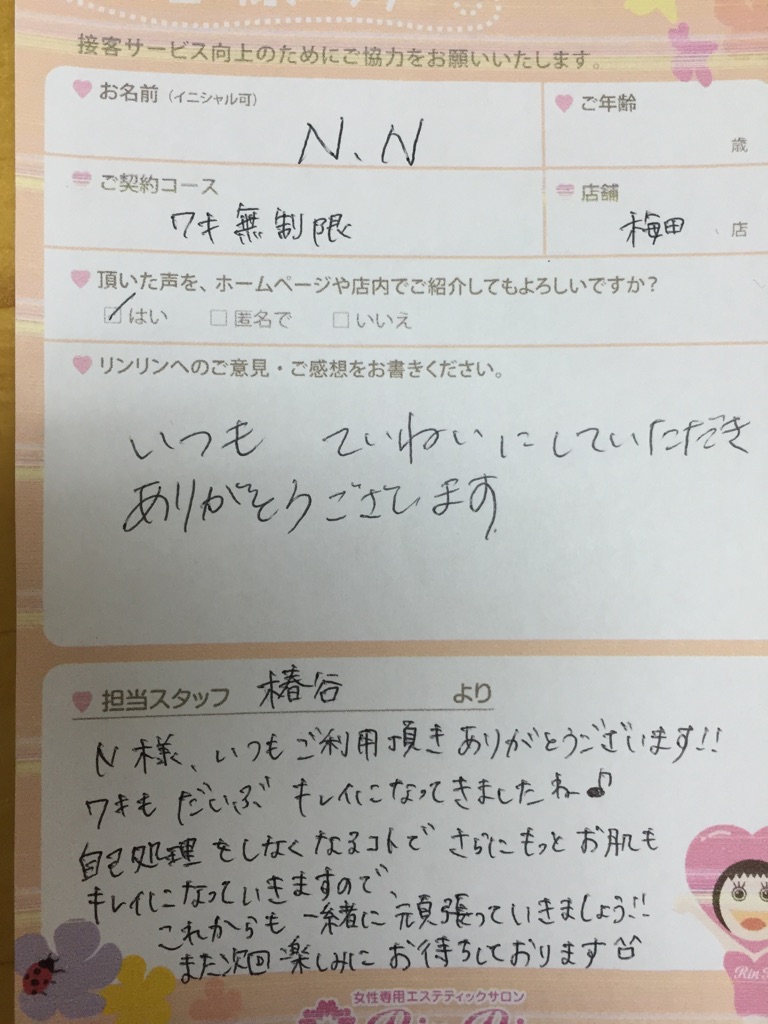 接客サービス向上のためにご協力をお願いいたします。
お名前（イニシャル可）
N、N
ご年齢
歳
ご契約コース
ワキ無制限
店舗
梅田 店
頂いた声を、ホームページや店内でご紹介してもよろしいですか？
はい 匿名で いいえ
リンリンへのご意見・ご感想をお書きください。
いつも ていねいにしていただき
ありがとうございます
担当スタッフ 椿谷 より
N様、いつもご利用頂きありがとうございます!!
ワキもだいぶキレイになってきましたね♪
自己処理をしなくなるコトでさらにもっとお肌も
キレイになっていきますので、
これからも一緒に頑張っていきましょう!!
また次回楽しみにお待ちしております
女性専用エステティックサロン